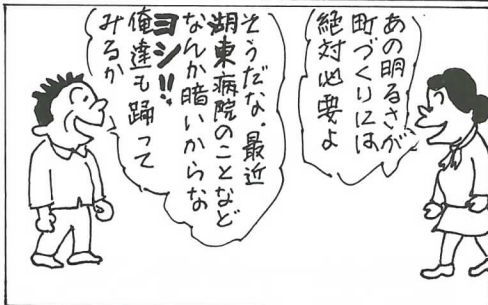 あの明るさが
町づくりには
絶対必要よ
そうだな。最近
湖東病院のことなど
なんか暗いからな
ヨシ!!
俺達も踊って
みるか